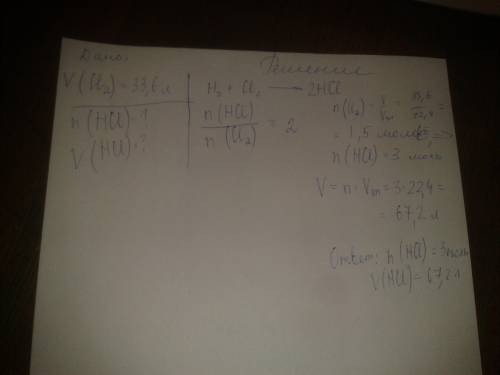 Дано:
V(Cl₂) = 33,6 л
n(HCl)-?
V(HCl)-?
Решение
H₂ + Cl₂ → 2HCl
n(HCl)
n(Cl₂) = 2
n(Cl₂) = V/Vm = 33,6/22,4 =
= 1,5 моль =>
n(HCl) = 3 моль
V = n · Vm = 3·22,4 =
= 67,2 л
Ответ: n(HCl) = 3 моль
V(HCl) = 67,2 л